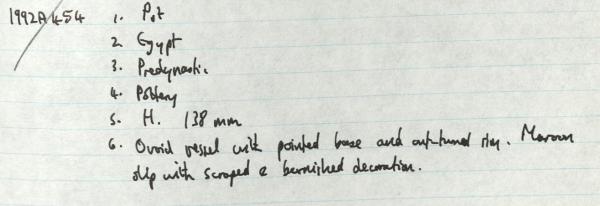 1992A454 1. Pot
2. Egypt
3. Predynastic
4. Pottery
5. H. 138 mm
6. Ovoid vessel with pointed base and out-turned rim. Maroon
slip with scraped & burnished decoration.